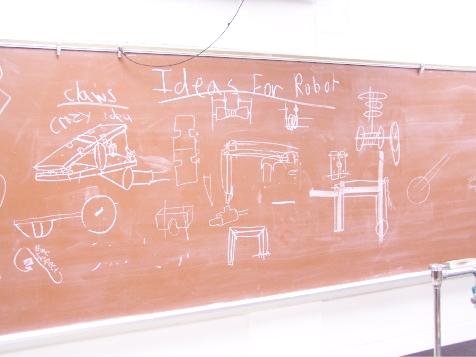 Ideas For Robot
claws
crazy idea